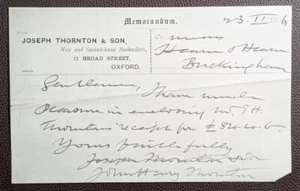 Memorandum.
23. II
JOSEPH THORNTON & SON,
New and Second-hand Booksellers,
11 BROAD STREET,
OXFORD.
Messrs
Hearn & Hearn
Buckingham
Gentlemen, I have much
pleasure in enclosing W. G. H.
Thornton's receipt for £
Yours faithfully
Joseph Thornton & Son
John Henry Thornton